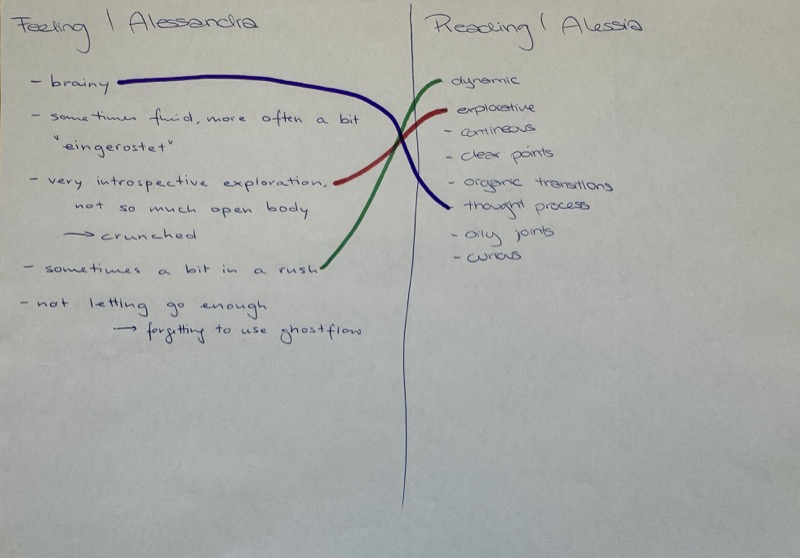 Feeling / Alessandra
- brainy
- sometimes fluid, more often a bit
"eingerostet"
- very introspective exploration,
not so much open body
→ crunched
- sometimes a bit in a rush
- not letting go enough
→ forgetting to use ghostflow
Reading / Alessia
dynamic
explorative
- contineous
- clear points
- organic transitions
thought process
- oily joints
- curious